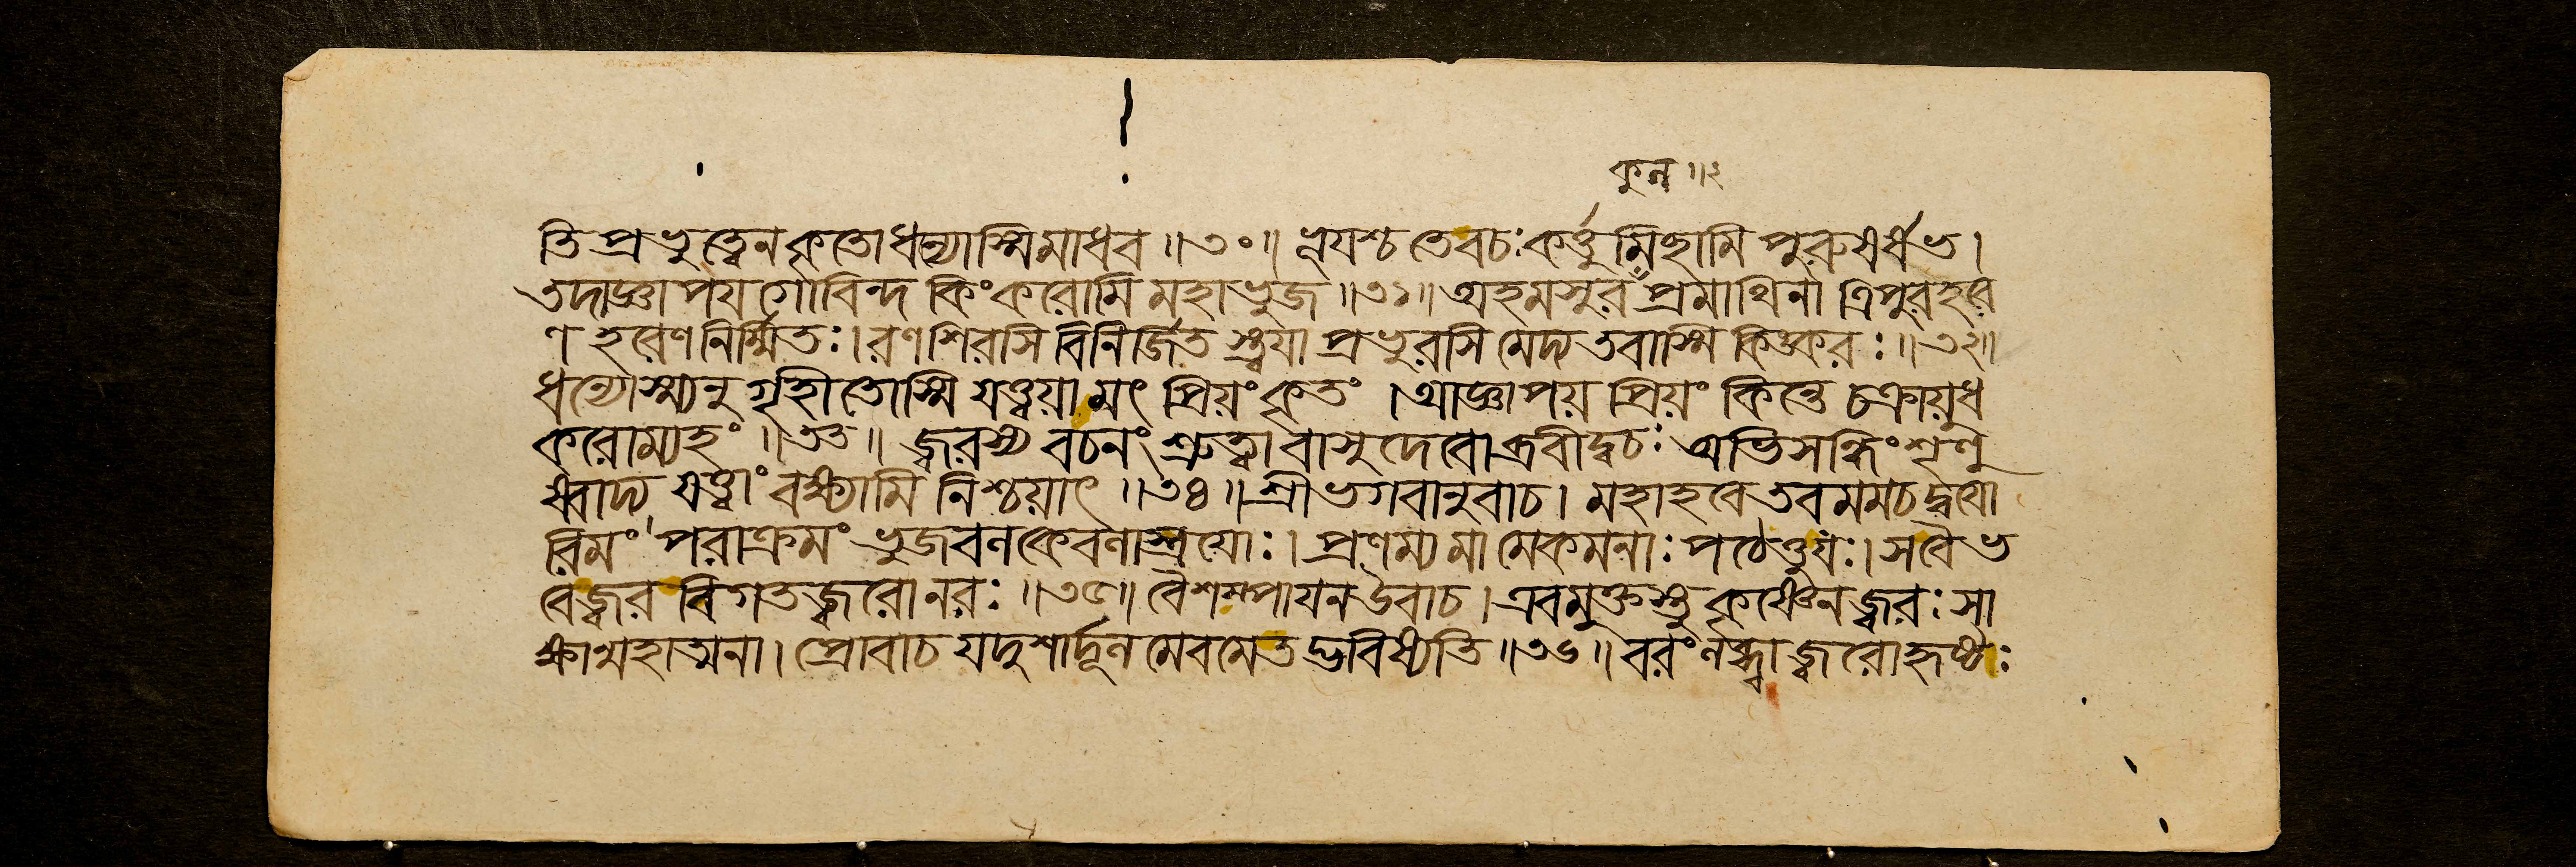 কুল ॥২
তি প্রভুত্বেন কৃতোধন্যাস্মিমাধব ॥৩০॥ ভূযশ্চ তেবচঃকর্ত্তুমিছামি পুরুষর্ষভ।
তদাজ্ঞাপয গোবিন্দ কিংকরোমি মহাভুজ ॥৩১॥ অহমসুরঁপ্রমাথিনা ত্রিপুরহরে
ণ হরেণনির্ম্মিতঃ। রণশিরসি বিনির্জিত স্ত্বযা প্রভুরসি মেদ্য তবাস্মি কিঙ্করঃ ॥৩২॥
ধন্যোস্ম্যনু গৃহীতোস্মি যত্ত্বয়া মৎ প্রিয়ংকৃতং । আজ্ঞাপয় প্রিয়ং কিন্তে চক্রায়ুধ
করোম্যহং ॥৩৩॥ জ্বরস্য বচনং শ্রুত্বা বাসুদেবোব্রবীদ্বচঃ অভিসন্ধিংশৃণু
ষ্বাদ্য যত্ত্বাং বক্ষ্যামি নিশ্চয়াৎ ॥৩৪॥ শ্রীভগবানুবাচ। মহাহবে তবমমচদ্বযো
রিমং পরাক্রমং ভুজবলকেবলাস্ত্রযোঃ। প্রণম্য মামেকমনাঃ পঠেত্তুযঃ। সবৈ ভ
বেজ্জ্বর বিগতজ্বরোনরঃ ॥৩৫॥ বৈশম্পাযনউবাচ। এবমুক্তস্তু কৃষ্ণেনজ্বরঃ সা
ক্ষান্মহাত্মনা। প্রোবাচ যদুশার্দূল মেবমেতদ্ভবিষ্যতি ॥৩৬॥ বরং লব্ধ্বা জ্বরোহৃষ্টঃ